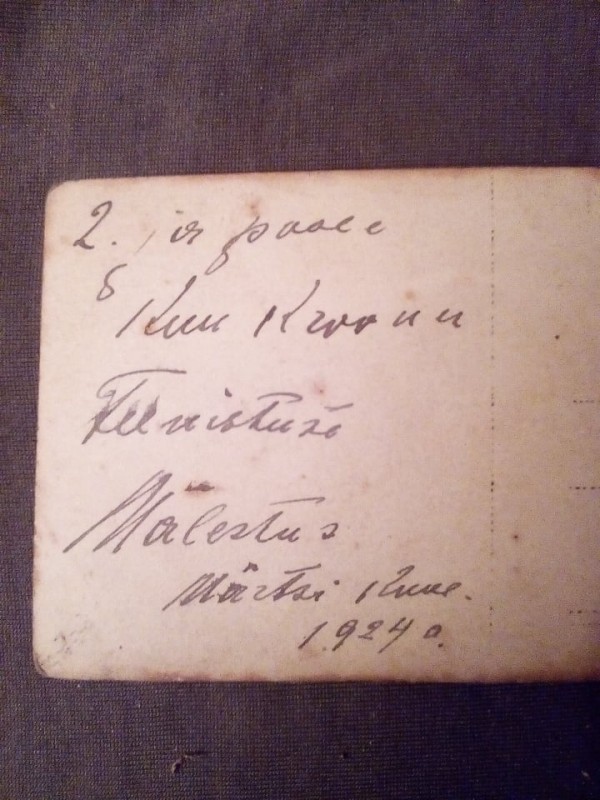 2. ja poole
Kuu Kroonu
Teenistuse
Mälestus
Märtsi Kuue.
1924 a.